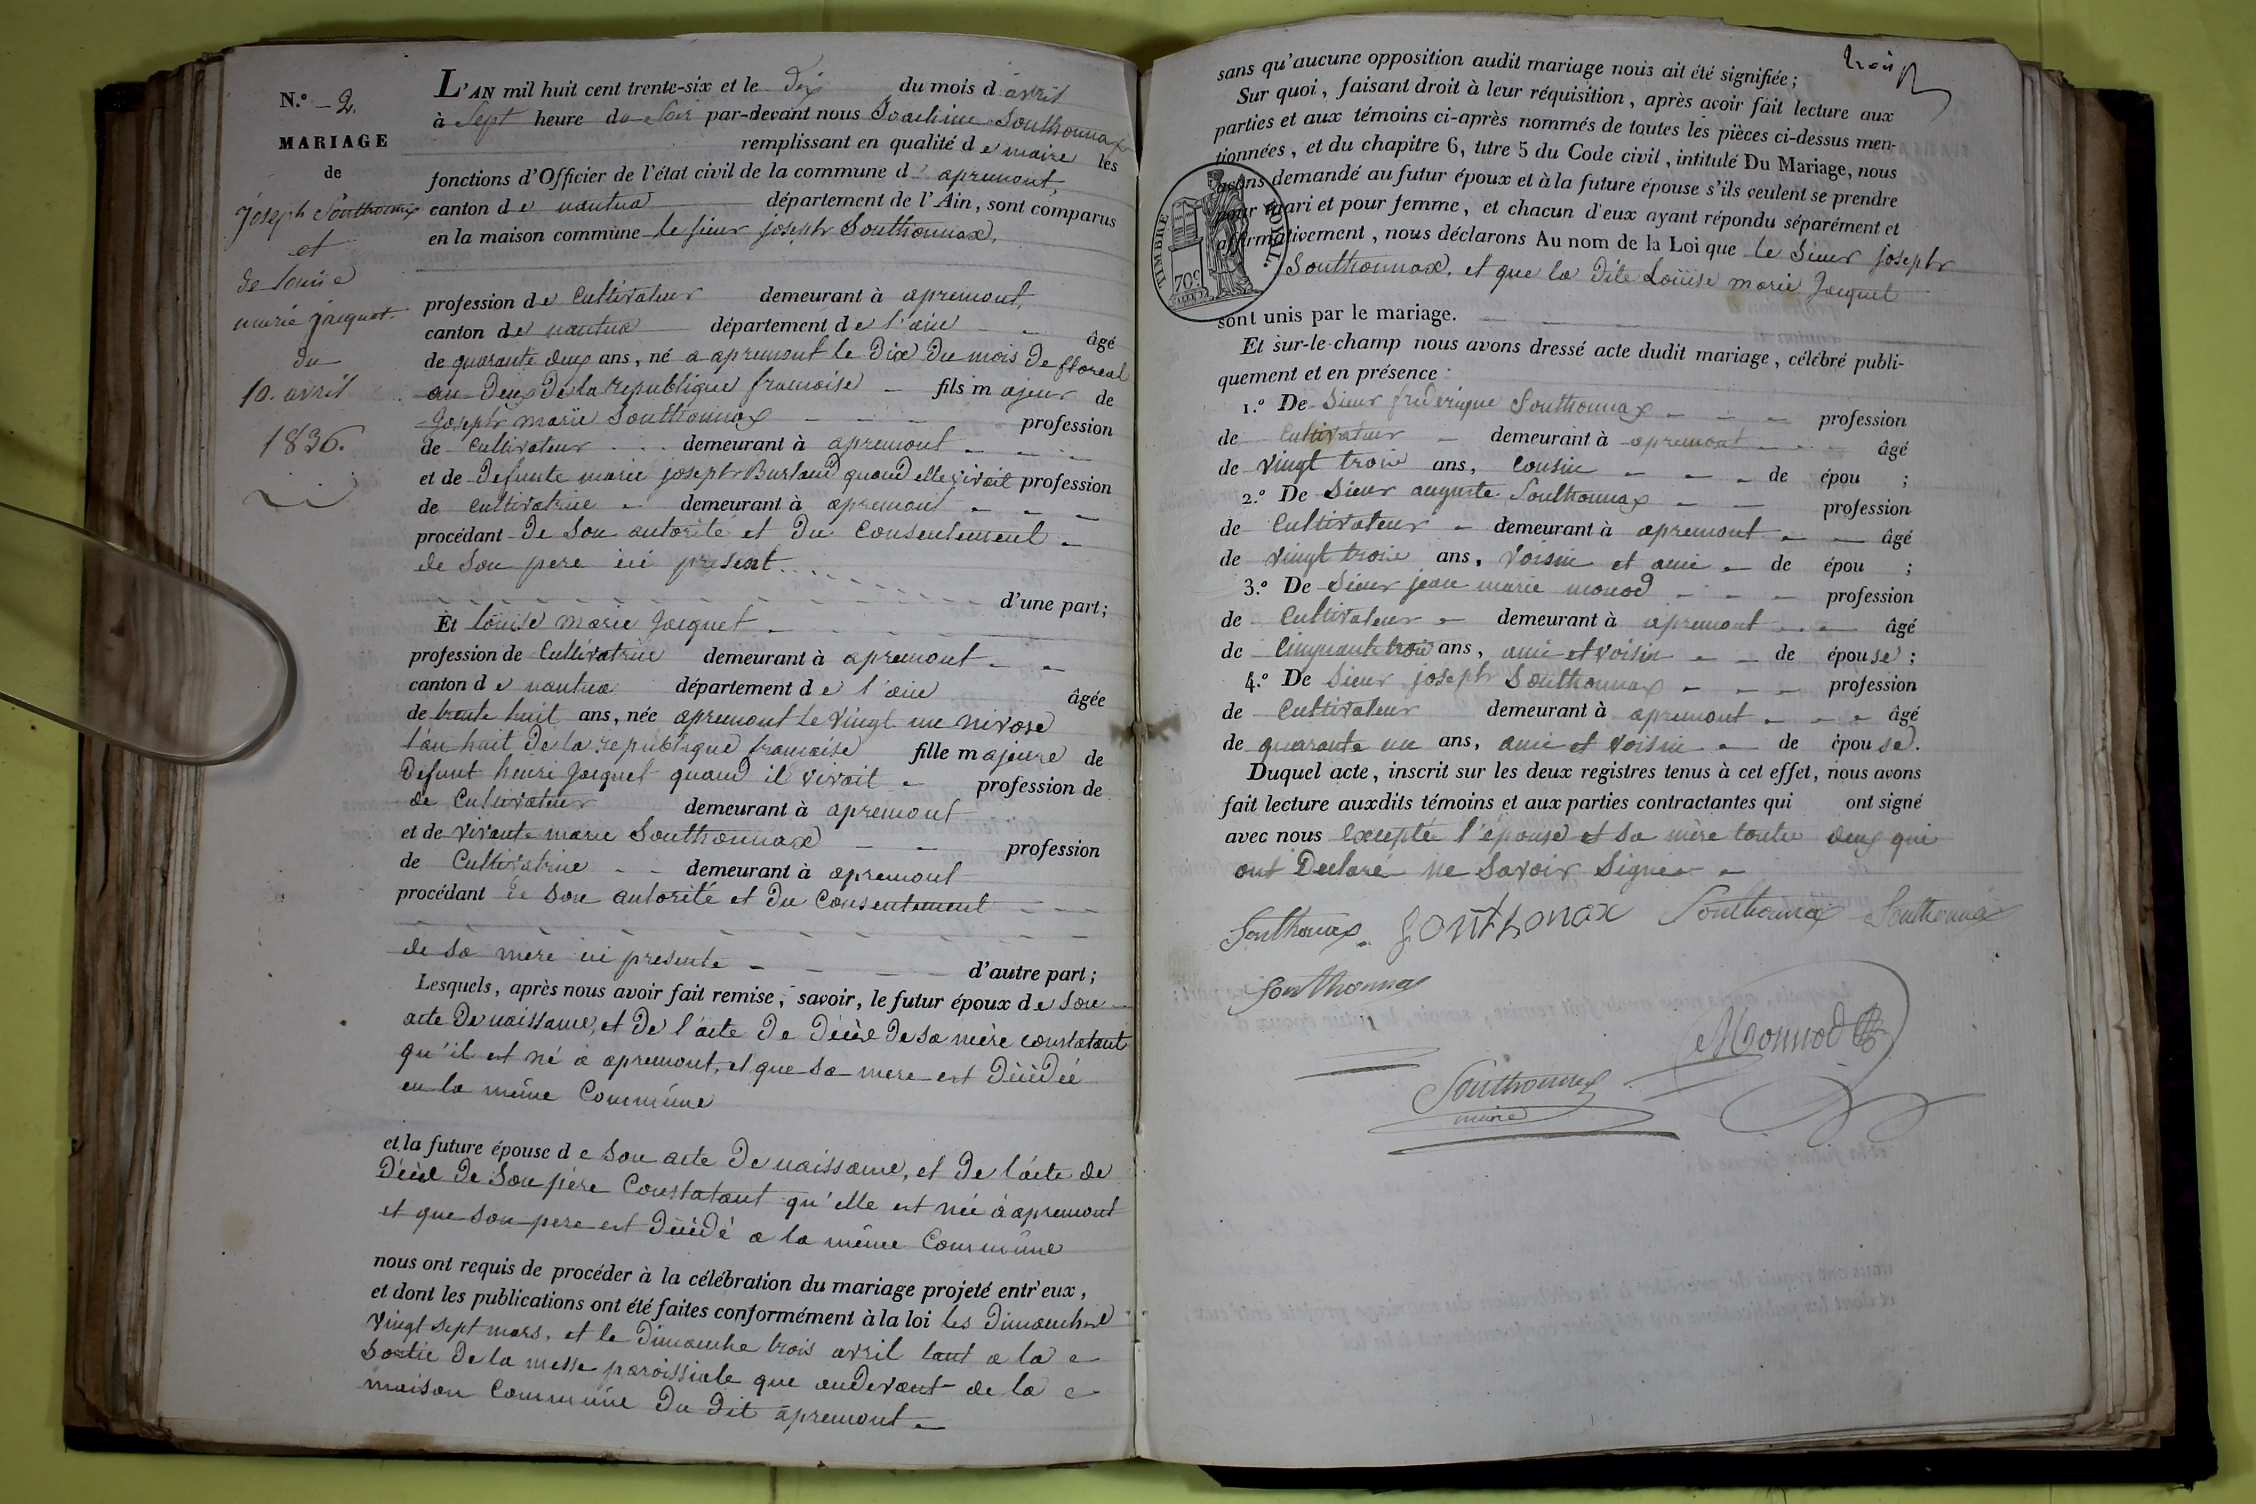 N.° 2.
MARIAGE
de
joseph Southonnax
et
de louise
marie jacquet.
du
10. avril
1836.
L'AN mil huit cent trente-six et le Dix du mois d avril
à Sept heure du Soir par-devant nous Joachim Southonnax
remplissant en qualité de maire les
fonctions d'Officier de l'état civil de la commune d apremont,
canton de nantua département de l'Ain, sont comparus
en la maison commune le sieur joseph Southonnax,
profession de Cultivateur demeurant à apremont,
canton de nantua département de l'ain âgé
de quarante deux ans, né a apremont le Dix Du mois De floreal
an Deux De la republique francaise fils majeur de
Joseph marie Southonnax profession
de Cultivateur demeurant à apremont
et de Defunte marie joseph Burland quand elle vivait profession
de Cultivatrice demeurant à apremont
procédant De Son autorité et Du Consentement
de Son pere ici present
d'une part;
Et loüise marie Jacquet
profession de Cultivatrice demeurant à apremont
canton de nantua département de l'ain âgée
de trente huit ans, née apremont le vingt un nivose
l'an huit De la republique francaise fille majeure de
Defunt henri Jacquet quand il vivait profession de
de Cultivateur demeurant à apremont
et de vivante marie Southonnax profession
de Cultivatrice demeurant à apremont
procédant de son autorité et Du Consentement
de sa mere ici presente d'autre part;
Lesquels, après nous avoir fait remise, savoir, le futur époux de Son
acte De naissance, et De l'acte De Décès De sa mère constatant
qu'il est né a apremont, et que sa mere est Décédée
en la même Commune
et la future épouse de Son acte De naissance, et De l'acte de
Décès De Son père Constatant qu'elle est née à apremont
et que son pere est Décédé a la même Commune
nous ont requis de procéder à la célébration du mariage projeté entr'eux,
et dont les publications ont été faites conformément à la loi les Dimanches
vingt sept mars, et le Dimanche trois avril tant a la
Sortie De la messe paroissiale que audevant de la
maison Commune Du Dit apremont
trois
sans qu'aucune opposition audit mariage nous ait été signifiée;
Sur quoi, faisant droit à leur réquisition, après avoir fait lecture aux
parties et aux témoins ci-après nommés de toutes les pièces ci-dessus men-
tionnées, et du chapitre 6, titre 5 du Code civil, intitulé Du Mariage, nous
avons demandé au futur époux et à la future épouse s'ils veulent se prendre
pour mari et pour femme, et chacun d'eux ayant répondu séparément et
affirmativement, nous déclarons Au nom de la Loi que le Sieur joseph
Southonnax, et que la Dite Loüise marie Jacquet
TIMBRE ROYAL.
70c
sont unis par le mariage.
Et sur-le-champ nous avons dressé acte dudit mariage, célébré publi-
quement et en présence :
1.° De Sieur frederique Southonnax profession
de Cultivateur demeurant à apremont âgé
de vingt trois ans, Cousin de épou ;
2.° De Sieur auguste Southonnax profession
de Cultivateur demeurant à apremont âgé
de vingt trois ans, Voisin et ami de épou ;
3.° De Sieur jean marie monod profession
de Cultivateur demeurant à apremont âgé
de Cinquante trois ans, ami et voisin de épouse ;
4.° De Sieur joseph Southonnax profession
de Cultivateur demeurant à apremont âgé
de quarante un ans, ami et voisin de épouse.
Duquel acte, inscrit sur les deux registres tenus à cet effet, nous avons
fait lecture auxdits témoins et aux parties contractantes qui ont signé
avec nous Excepté l'épouse et Sa mère toutes deux qui
ont Declaré ne Savoir Signer
Southonax Southonax Southonnax Southonnax
Southonnax
Monnod
Southonnax
maire